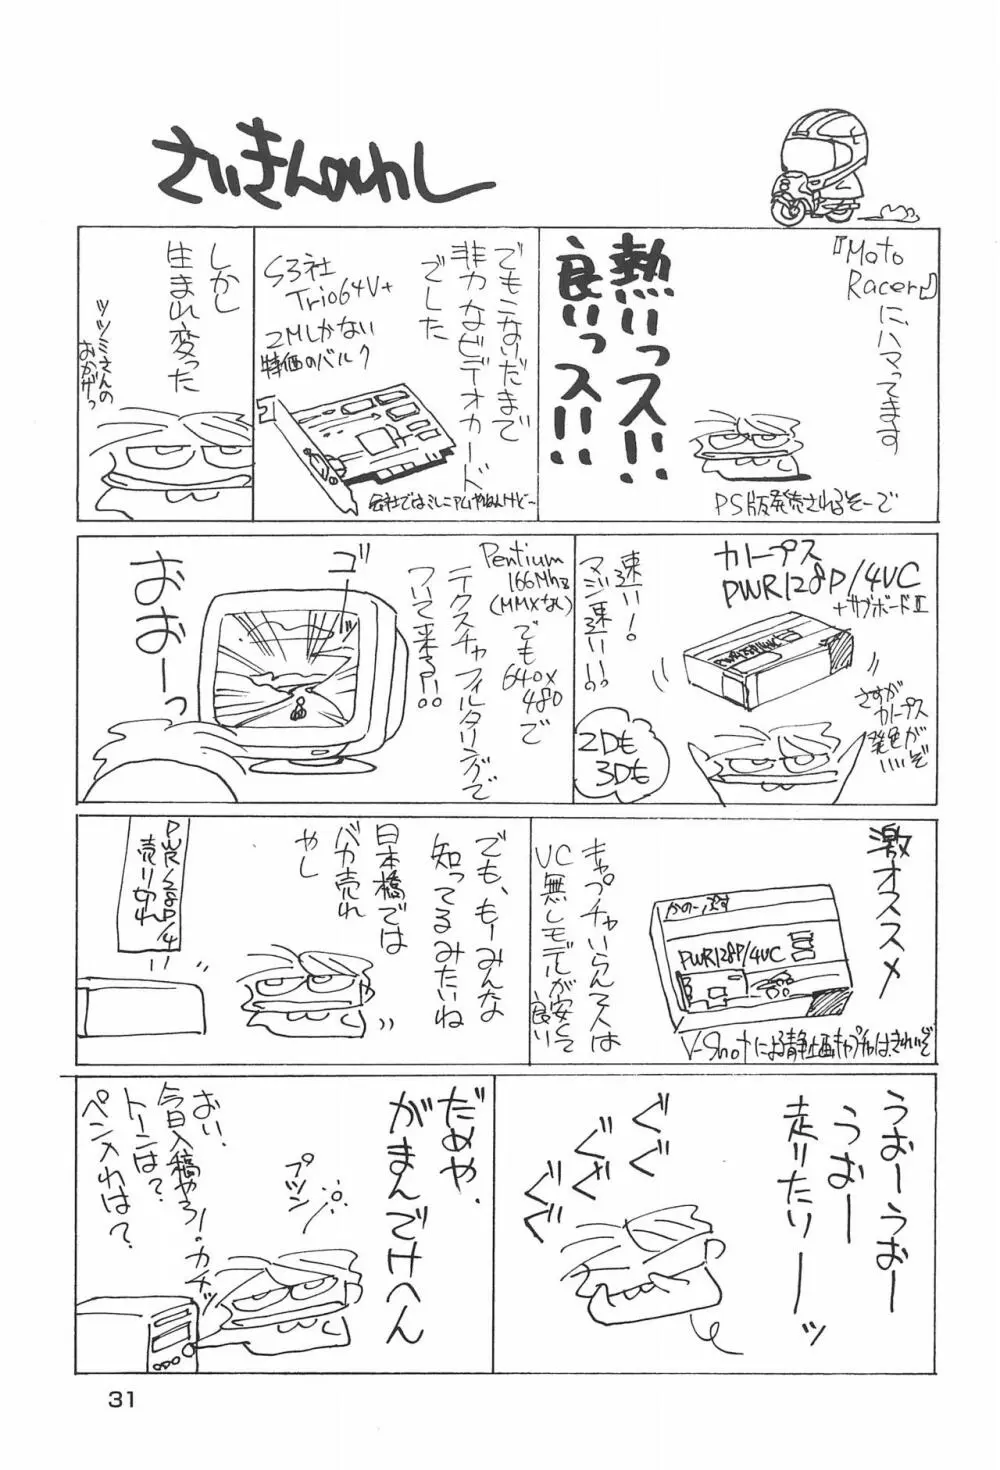 さいきんのわし
『Moto
Racer』に、ハマってます
熱いっス!!
良いっス!!
PS版発売されるそーで
でもこないだまで
非力なビデオカード
でした
S3社
Trio64V+
2Mしかない
特価のバルク
会社ではミレニアムやねんけど〜
しかし
生まれ変った
ツツミさんの
おかげっ
カノープス
PWR128P/4VC
+サブボードII
速い!
マジ速い!!
PWR128P/4VC
さすが
カノープス
発色が
いいぞ
2Dも
3Dも
Pentium
166Mhz
(MMXなし)
でも
640×
480で
テクスチャフィルタリングで
ついて来る!!
ゴー
おおーっ
激オススメ
かのーぷす
PWR128P/4VC
V-Shotによる静止画キャプチャは、きれいぞ
キャプチャいらん人は
VC無しモデルが安くて
良い
でも、もーみんな
知ってるみたいね
日本橋では
バカ売れ
やし
PWR128P/4
売り切れ
うおーうおー
うおー
走りたいーッ
ぐぐ
ぐぐ
ぐぐ
だめや、
がまんでけへん
プツン
おい、
今日入稿やろ!
トーンは?
ペン入れは?
カチッ
31